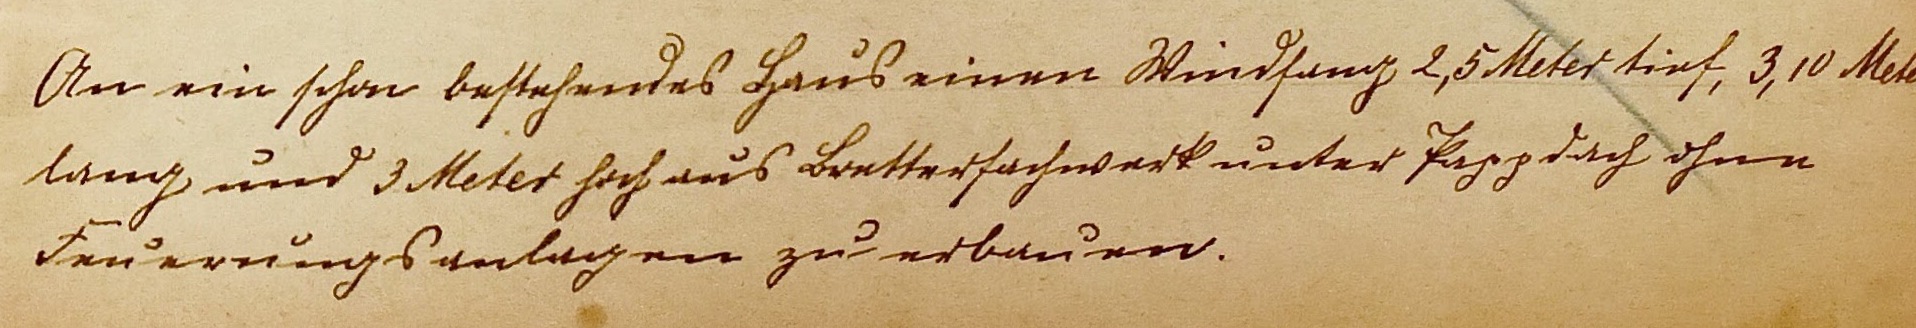 An ein schon bestehendes Haus einen Windfang 2,5 Meter tief, 3,10 Mete
lang und 3 Meter hoch aus Bretterfachwerk unter Pappdach ohne
Feuerungsanlagen zu erbauen.